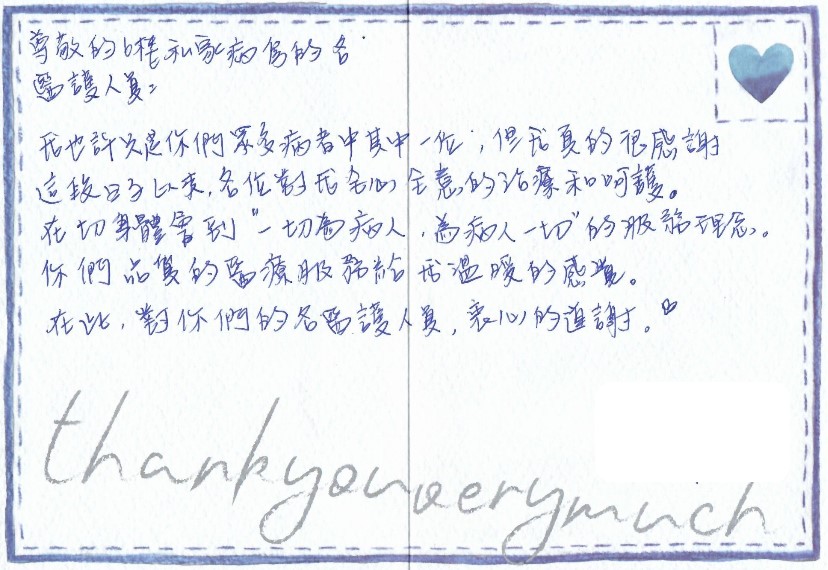 尊敬的6樓私家病房的各
醫護人員:
我也許只是你們眾多病者中其中一位,但我真的很感謝
這段日子以來,各位對我全心全意的治療和呵護。
在切身體會到"一切為病人,為病人一切"的服務理念。
你們品質的醫療服務給我溫暖的感覺。
在此,對你們的各醫護人員,衷心的道謝。
thankyouverymuch